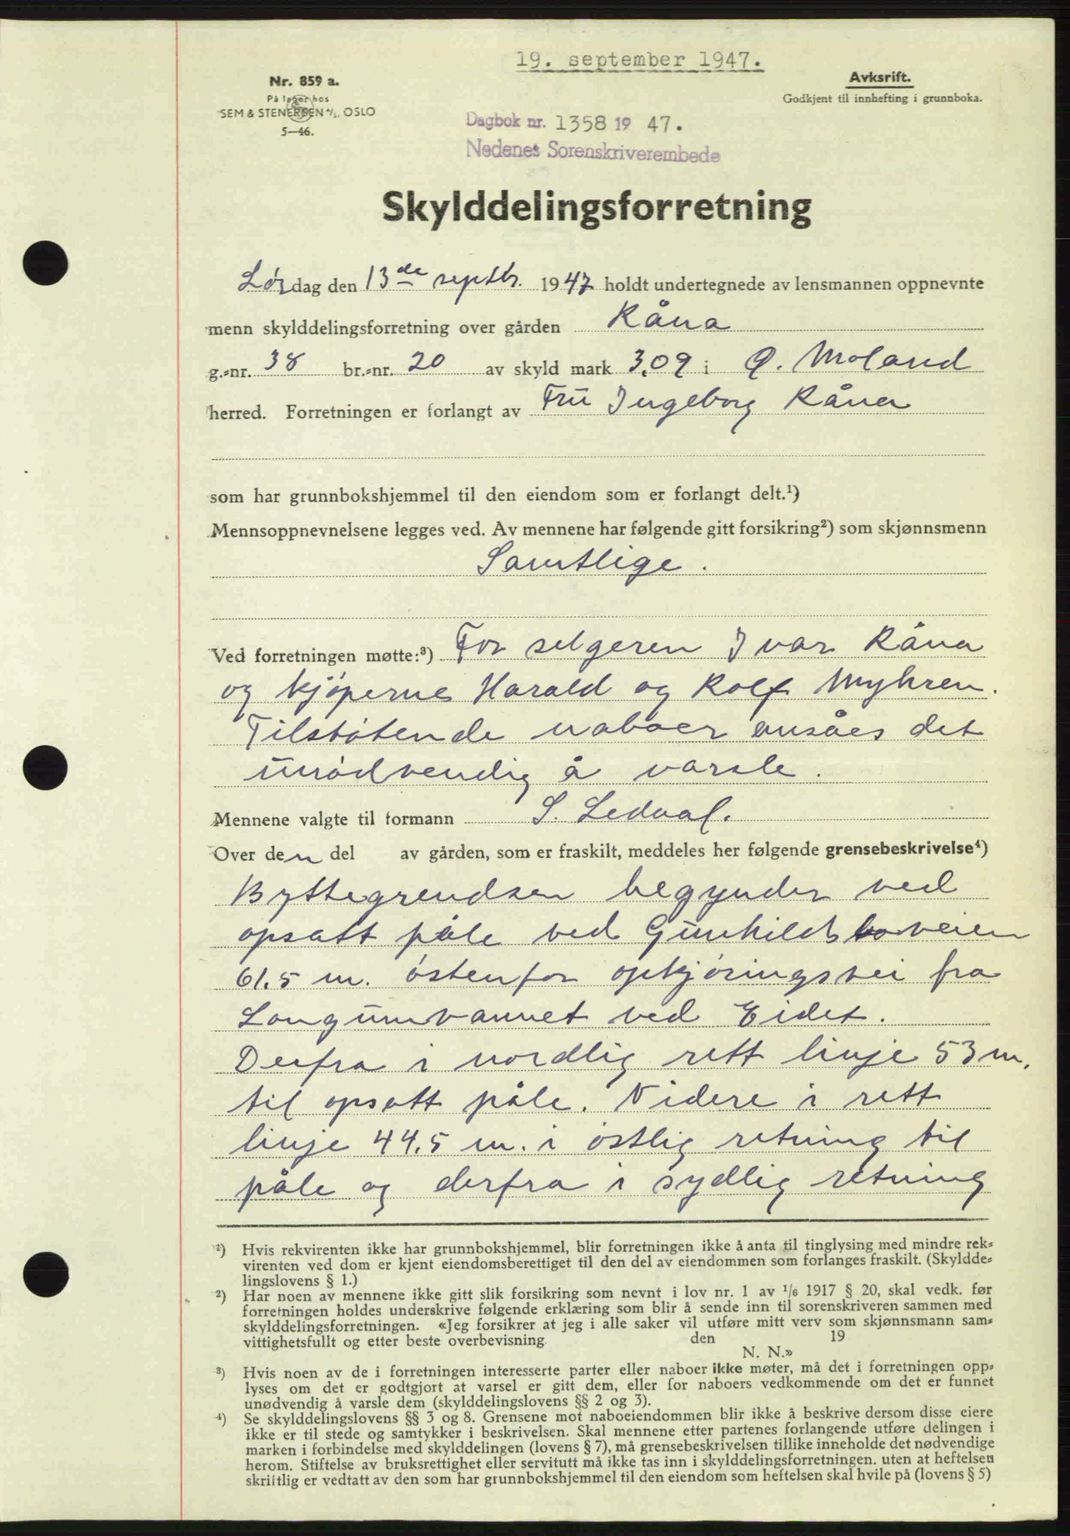 19. september 1947.
Nr. 859 a.
På lager hos
SEM & STENERSEN A/S, OSLO
5—46.
Avskrift.
Godkjent til innhefting i grunnboka.
Dagbok nr. 1358 19 47.
Nedenes Sorenskriverembede
Skylddelingsforretning
Lørdag den 13de septbr. 1947 holdt undertegnede av lensmannen oppnevnte
menn skylddelingsforretning over gården Råna
g.=nr. 38 br.=nr. 20 av skyld mark 3,09 i Ø. Moland
herred. Forretningen er forlangt av Fru Ingeborg Råna
som har grunnbokshjemmel til den eiendom som er forlangt delt.¹)
Mennsoppnevnelsene legges ved. Av mennene har følgende gitt forsikring²) som skjønnsmenn
Samtlige.
Ved forretningen møtte:³) For selgeren Ivar Råna
og kjøperne Harald og Rolf Myhren.
Tilstøtende naboer ansåes det
unødvendig å varsle.
Mennene valgte til formann S. Ledaal.
Over den del av gården, som er fraskilt, meddeles her følgende grensebeskrivelse⁴)
Byttegrendsen begynder ved
opsatt påle ved Gunhildsboveien
61,5 m. østenfor opkjøringsvei fra
Longumvannet ved Eidet.
Derfra i nordlig rett linje 53 m.
til opsatt påle. Videre i rett
linje 44,5 m. i østlig retning til
påle og derfra i sydlig retning
¹) Hvis rekvirenten ikke har grunnbokshjemmel, blir forretningen ikke å anta til tinglysing med mindre rek=
virenten ved dom er kjent eiendomsberettiget til den del av eiendommen som forlanges fraskilt. (Skyldde=
lingslovens § 1.)
²) Har noen av mennene ikke gitt slik forsikring som nevnt i lov nr. 1 av 1/6 1917 § 20, skal vedk. før
forretningen holdes underskrive følgende erklæring som blir å sende inn til sorenskriveren sammen med
skylddelingsforretningen. «Jeg forsikrer at jeg i alle saker vil utføre mitt verv som skjønnsmann sam=
vittighetsfullt og etter beste overbevisning den 19
N. N.»
³) Hvis noen av de i forretningen interesserte parter eller naboer ikke møter, må det i forretningen opp=
lyses om det er godtgjort at varsel er gitt dem, eller for naboers vedkommende om det er funnet
unødvendig å varsle dem (skylddelingslovens §§ 2 og 3).
⁴) Se skylddelingslovens §§ 3 og 8. Grensene mot naboeiendommen blir ikke å beskrive dersom disse eiere
ikke er til stede og samtykker i beskrivelsen. Skal mennene etter partenes forlangende utføre delingen i
marken i forbindelse med skylddelingen (lovens § 7), må grensebeskrivelsen tillike inneholde det nødvendige
herom. Stiftelse av bruksrettighet eller servitutt må ikke tas inn i skylddelingsforretningen, uten at heftelsen
skriftlig er vedtatt av den som har grunnbokshjemmel til den eiendom som heftelsen skal hvile på (lovens § 5)